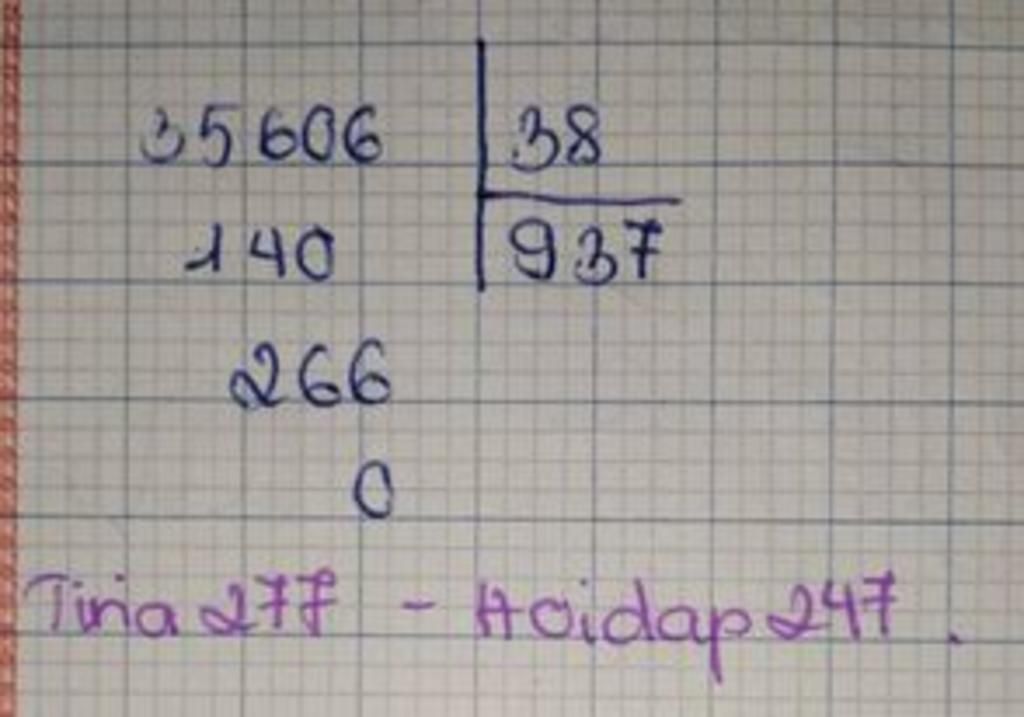 35606 38
140 937
266
0
Tina 277 - Hoidap247.